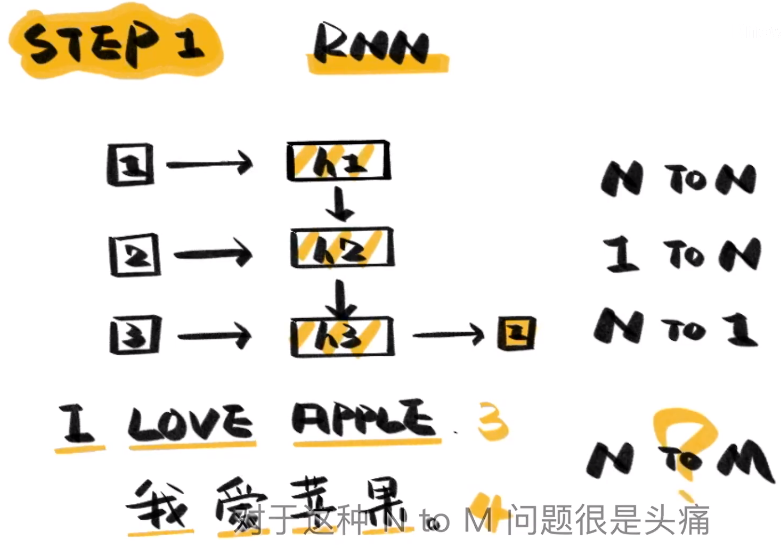 STEP 1
RNN
1 h1
2 h2
3 h3 1
N TO N
1 TO N
N TO 1
I LOVE APPLE. 3
N TO M ?
我爱苹果。 4
对于这种 N to M 问题很是头痛